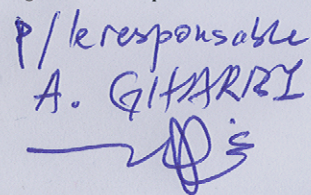 P/le responsable
A. GHARBI